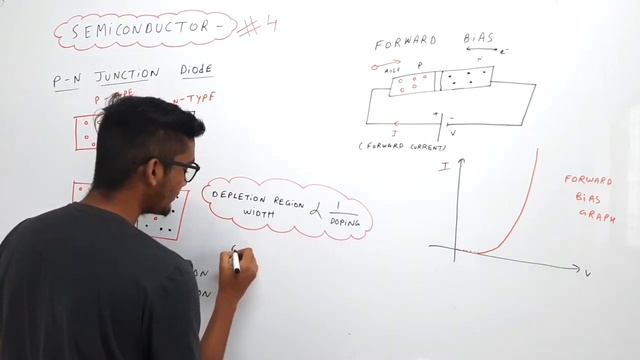 SEMICONDUCTOR - #4
P-N JUNCTION DIODE
P-TYPE
N-TYPE
DEPLETION REGION
WIDTH
∝
1
DOPING
FORWARD BIAS
e-
HOLE
P
N
+
-
I
V
(FORWARD CURRENT)
I
V
FORWARD
BIAS
GRAPH